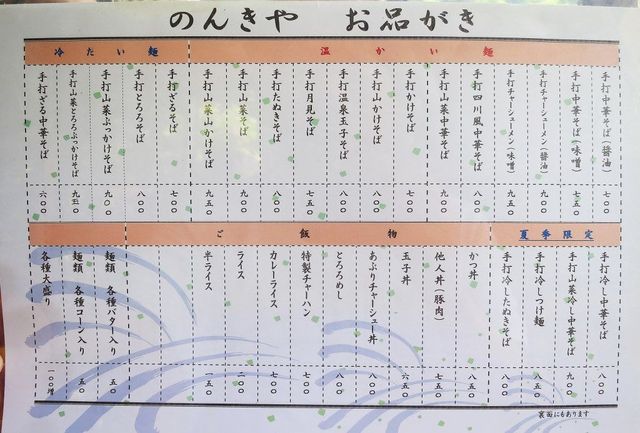 のんきや お品がき
温かい麺
手打中華そば（醤油） 七〇〇
手打中華そば（味噌） 七五〇
手打チャーシューメン（醤油） 九〇〇
手打チャーシューメン（味噌） 九五〇
手打四川風中華そば 八〇〇
手打山菜中華そば 九〇〇
手打かけそば 七〇〇
手打山かけそば 八〇〇
手打温泉玉子そば 八〇〇
手打月見そば 七五〇
手打たぬきそば 八〇〇
手打山菜そば 九〇〇
手打山菜山かけそば 九五〇
冷たい麺
手打ざるそば 七〇〇
手打とろろそば 八〇〇
手打山菜ぶっかけそば 九〇〇
手打山菜とろろぶっかけそば 九五〇
手打ざる中華そば 六〇〇
夏季限定
手打冷し中華そば 八〇〇
手打山菜冷し中華そば 九〇〇
手打冷しつけ麺 八五〇
手打冷したぬきそば 八〇〇
ご飯物
かつ丼 八五〇
他人丼（豚肉） 七五〇
玉子丼 六五〇
あぶりチャーシュー丼 八〇〇
とろろめし 八〇〇
特製チャーハン 七〇〇
カレーライス 七〇〇
ライス 二〇〇
半ライス 一五〇
麺類 各種バター入り 五〇
麺類 各種コーン入り 五〇
各種大盛り 一〇〇増
裏面にもあります